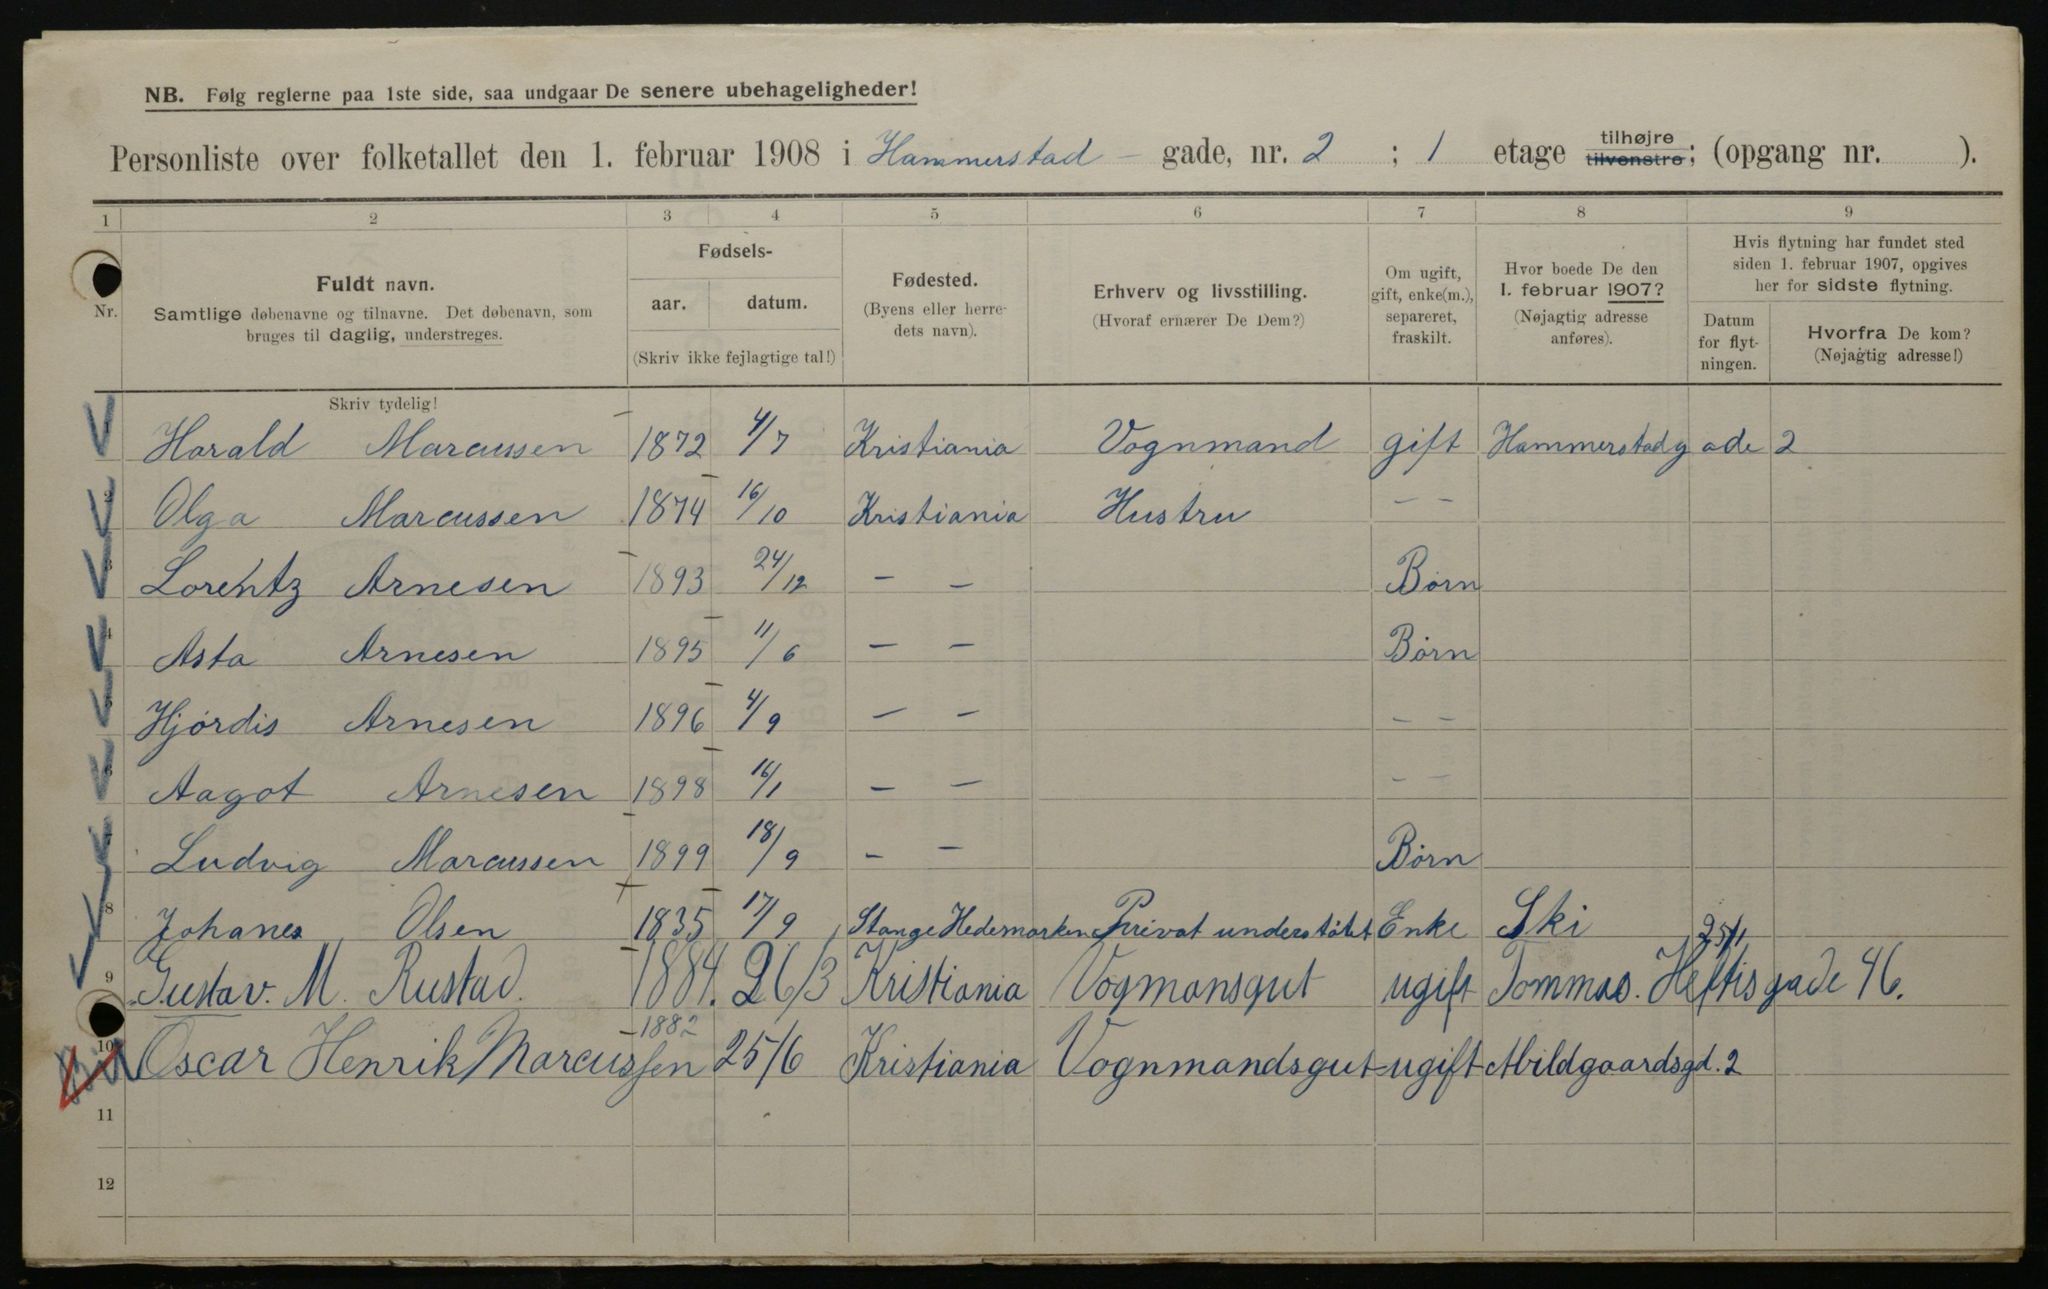 NB. Følg reglerne paa 1ste side, saa undgaar De senere ubehageligheder!
Personliste over folketallet den 1. februar 1908 i Hammerstad - gade, nr. 2 ; 1 etage tilhøjre tilvenstre; (opgang nr. ).
1 2 3 4 5 6 7 8 9
Nr.
Fuldt navn.
Samtlige døbenavne og tilnavne. Det døbenavn, som
bruges til daglig, understreges.
Skriv tydelig!
Fødsels-
aar. datum.
(Skriv ikke fejlagtige tal!)
Fødested.
(Byens eller herre-
dets navn).
Erhverv og livsstilling.
(Hvoraf ernærer De Dem?)
Om ugift,
gift, enke(m.),
separeret,
fraskilt.
Hvor boede De den
1. februar 1907?
(Nøjagtig adresse
anføres).
Hvis flytning har fundet sted
siden 1. februar 1907, opgives
her for sidste flytning.
Datum
for flyt-
ningen.
Hvorfra De kom?
(Nøjagtig adresse!)
Harald Marcussen 1872 4/7 Kristiania Vognmand gift Hammerstadgade 2
2 Olga Marcussen 1874 16/10 Kristiania Hustru - -
3 Lorentz Arnesen 1893 24/12 - - Børn
4 Asta Arnesen 1895 11/6 - - Børn
5 Hjørdis Arnesen 1896 4/9 - - - -
6 Aagot Arnesen 1898 16/1 - - - -
7 Ludvig Marcussen 1899 18/9 - - Børn
8 Johanes Olsen 1835 17/9 Stange Hedemarken Privat understøtet Enke Ski 25/1
9 Gustav. M. Rustad. 1884. 26/3 Kristiania Vogmansgut ugift Tommas. Heftisgade 46.
10 Oscar Henrik Marcussen 1882 25/6 Kristiania Vognmandsgut ugift Abildgaardsgd. 2
11
12